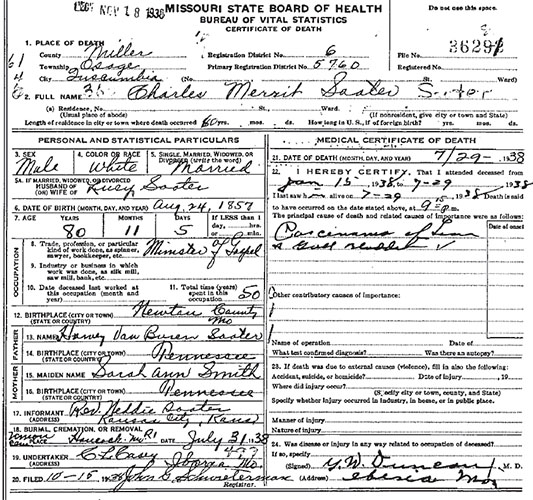 REC'D NOV 18 1938
MISSOURI STATE BOARD OF HEALTH
BUREAU OF VITAL STATISTICS
CERTIFICATE OF DEATH
Do not use this space.
1. PLACE OF DEATH
County Miller Registration District No. 6 File No. 36291
Township Osage Primary Registration District No. 5760 Registered No.
City Tuscumbia (No. St. Ward)
2. FULL NAME Charles Merrit Sooter Sooter
(a) Residence, No. St. Ward.
(Usual place of abode) (If nonresident, give city or town and State)
Length of residence in city or town where death occurred 60 yrs. mos. ds. How long in U. S., if of foreign birth? yrs. mos. ds.
PERSONAL AND STATISTICAL PARTICULARS
3. SEX Male
4. COLOR OR RACE White
5. SINGLE, MARRIED, WIDOWED, OR DIVORCED (write the word) Married
5A. IF MARRIED, WIDOWED, OR DIVORCED
HUSBAND OF
(OR) WIFE OF Lucy Sooter
6. DATE OF BIRTH (MONTH, DAY, AND YEAR) Aug. 24, 1857
7. AGE YEARS MONTHS DAYS If LESS than 1 day, hrs. or min.
80 11 5
OCCUPATION
8. Trade, profession, or particular kind of work done, as spinner, sawyer, bookkeeper, etc. Minister of Gospel
9. Industry or business in which work was done, as silk mill, saw mill, bank, etc.
10. Date deceased last worked at this occupation (month and year)
11. Total time (years) spent in this occupation 50
12. BIRTHPLACE (CITY OR TOWN) Newton County
(STATE OR COUNTRY) Mo
FATHER
13. NAME Harvey Van Buren Sooter
14. BIRTHPLACE (CITY OR TOWN) Tennessee
(STATE OR COUNTRY)
MOTHER
15. MAIDEN NAME Sarah Ann Smith
16. BIRTHPLACE (CITY OR TOWN) Tennessee
(STATE OR COUNTRY)
17. INFORMANT Rev Neddie Sooter
(ADDRESS) Kansas City, Kans
18. BURIAL, CREMATION, OR REMOVAL
Hancock Mo R1 DATE July 31 1938
19. UNDERTAKER C L Casey
(ADDRESS) Iberia Mo
20. FILED 10-15, 1938 John G. Schwesterman
Registrar.
MEDICAL CERTIFICATE OF DEATH
21. DATE OF DEATH (MONTH, DAY, AND YEAR) 7/29- 1938
22. I HEREBY CERTIFY, That I attended deceased from
Jan 15 1938, to 7-29 1938
I last saw h alive on 7-29 1938 Death is said
to have occurred on the date stated above, at 9 15 P.m.
The principal cause of death and related causes of importance were as follows:
Date of onset
Carcinoma of Liver
& Gall bladder
Other contributory causes of importance:
Name of operation Date of
What test confirmed diagnosis? Was there an autopsy?
23. If death was due to external causes (violence), fill in also the following:
Accident, suicide, or homicide? Date of injury , 19
Where did injury occur?
(Specify city or town, county, and State)
Specify whether injury occurred in industry, in home, or in public place.
Manner of injury
Nature of injury
24. Was disease or injury in any way related to occupation of deceased?
If so, specify
(Signed) G. W. Duncan M. D.
(Address) Iberia Mo